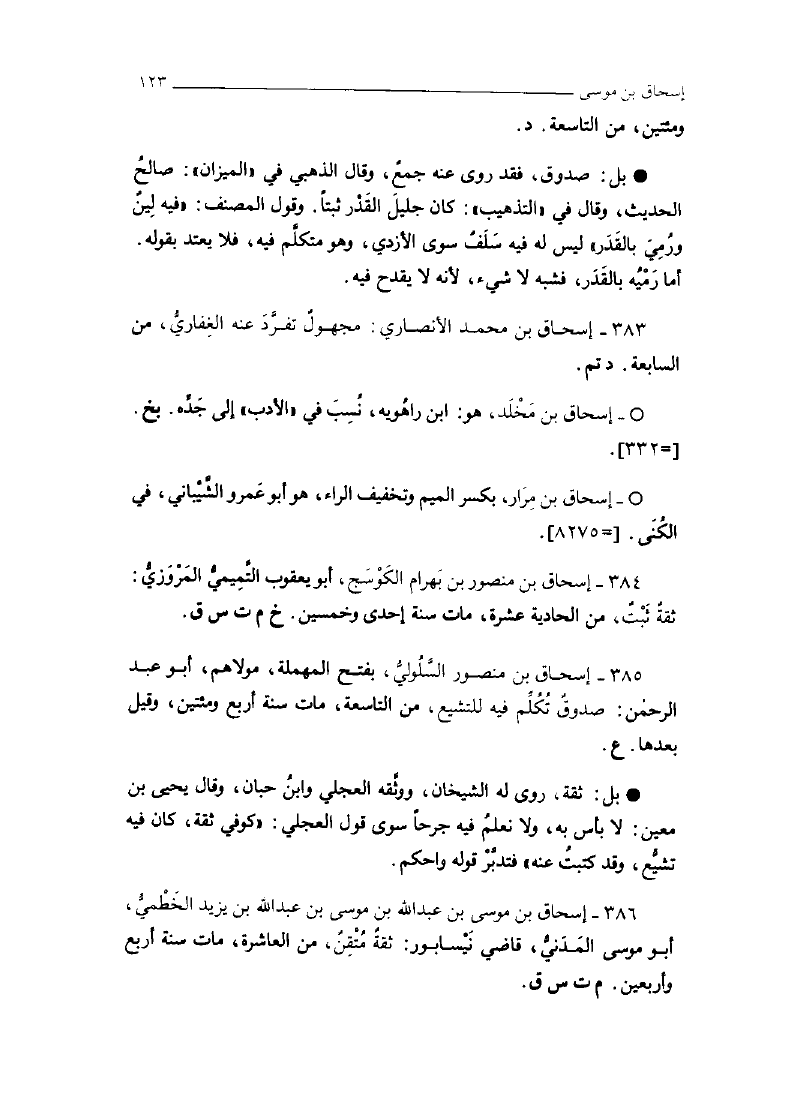 إسحاق بن موسى ١٢٣
ومئتين، من التاسعة. د.
● بل: صدوق، فقد روى عنه جمعٌ، وقال الذهبي في «الميزان»: صالحُ
الحديث، وقال في «التذهيب»: كان جليلَ القَدْر ثبتاً. وقول المصنف: «فيه لِينٌ
ورُمِيَ بالقَدَر» ليس له فيه سَلَفٌ سوى الأزدي، وهو متكلَّم فيه، فلا يعتد بقوله.
أما رَمْيُه بالقَدَر، فشبه لا شيء، لأنه لا يقدح فيه.
٣٨٣ ـ إسحـاق بن محمـد الأنصـاري: مجهـولٌ تفـرَّدَ عنه الغِفاريُّ، من
السابعة. د تم.
○ ـ إسحاق بن مَخْلَد، هو: ابن راهُويه، نُسِبَ في «الأدب» إلى جَدِّه. بخ.
[=٣٣٢].
○ ـ إسحاق بن مِرَار، بكسر الميم وتخفيف الراء، هو أبو عَمرو الشَّيْباني، في
الكُنَى. [=٨٢٧٥].
٣٨٤ ـ إسحاق بن منصور بن بَهرام الكَوْسَج، أبو يعقوب التَّمِيميُّ المَرْوَزيُّ:
ثقةٌ ثَبْتٌ، من الحادية عشرة، مات سنة إحدى وخمسين. خ م ت س ق.
٣٨٥ ـ إسحـاق بن منصـور السَّلُوليُّ، بفتـح المهملة، مولاهم، أبـو عبـد
الرحمٰن: صدوقٌ تُكُلِّم فيه للتشيع، من التاسعة، مات سنة أربع ومئتين، وقيل
بعدها. ع.
● بل: ثقة، روى له الشيخان، ووثَّقه العجلي وابنُ حبان، وقال يحيى بن
معين: لا بأس به، ولا نعلمُ فيه جرحاً سوى قول العجلي: «كوفي ثقة، كان فيه
تشيُّع، وقد كتبتُ عنه» فتدبَّرْ قوله واحكم.
٣٨٦ ـ إسحاق بن موسى بن عبدالله بن موسى بن عبدالله بن يزيد الخَطْميُّ،
أبـو موسى المَـدَنيُّ، قاضي نَيْسـابور: ثقةٌ مُتْقِنٌ، من العاشرة، مات سنة أربع
وأربعين. م ت س ق.